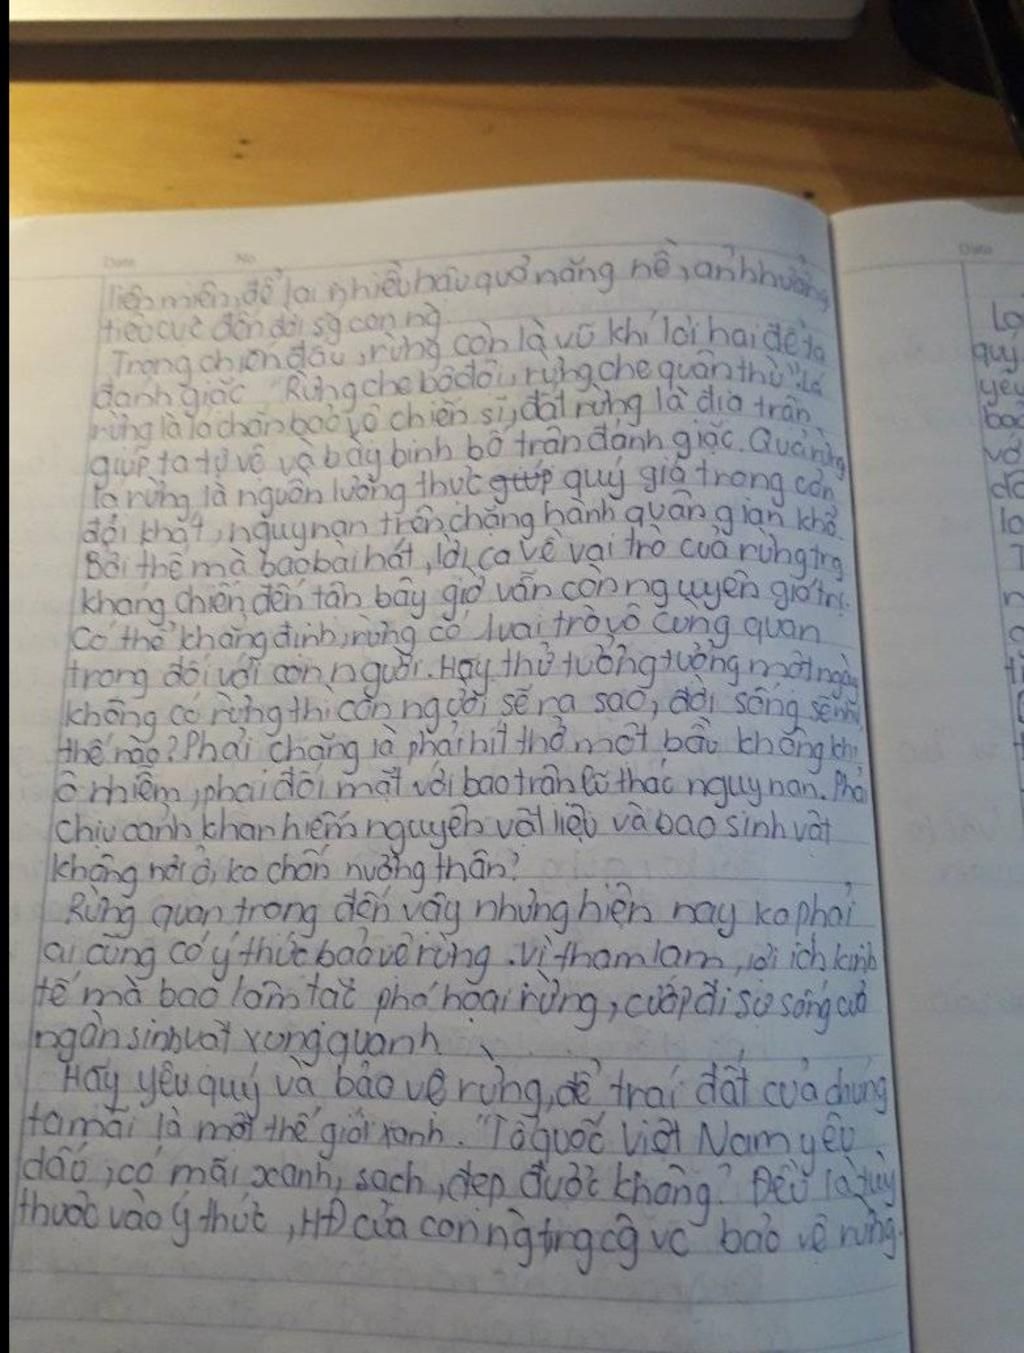 Date No
liên miên, để lại nhiều hậu quả nặng nề, ảnh hưởng
tiêu cực đến đời sg con ng
Trong chiến đấu, rừng còn là vũ khí lợi hại để ta
đánh giặc "Rừng che bộ đội, rừng che quân thù". Lá
rừng là lá chắn bảo vệ chiến sĩ, đất rừng là địa trận
giúp ta tự vệ và bày binh bố trận đánh giặc. Quả rừng
rừng là nguồn lương thực quý giá trong cơn
đói khát, nguy nan trên chặng hành quân gian khổ.
Bởi thế mà bao bài hát, lời ca về vai trò của rừng trg
kháng chiến đến tận bây giờ vẫn còn nguyên giá trị.
Có thể khẳng định, rừng có 1 vai trò vô cùng quan
trọng đối với con người. Hãy thử tưởng tượng một ngày
không có rừng thì con người sẽ ra sao, đời sống sẽ như
thế nào? Phải chăng là phải hít thở một bầu không khí
ô nhiễm, phải đối mặt với bao trận lũ thác nguy nan. Phải
chịu cảnh khan hiếm nguyên vật liệu và bao sinh vật
không nơi ở, ko chốn nương thân?
Rừng quan trọng đến vậy nhưng hiện nay ko phải
ai cũng có ý thức bảo vệ rừng. Vì tham lam, lợi ích kinh
tế mà bao lâm tặc phá hoại rừng, cướp đi sự sống của
ngàn sinh vật xung quanh
Hãy yêu quý và bảo vệ rừng, để trái đất của chúng
ta mãi là một thế giới xanh. "Tổ quốc Việt Nam yêu
dấu, có mãi xanh, sạch, đẹp được không?" Đều là tùy
thuộc vào ý thức, HĐ của con ng trg cg vc bảo vệ rừng.
Date